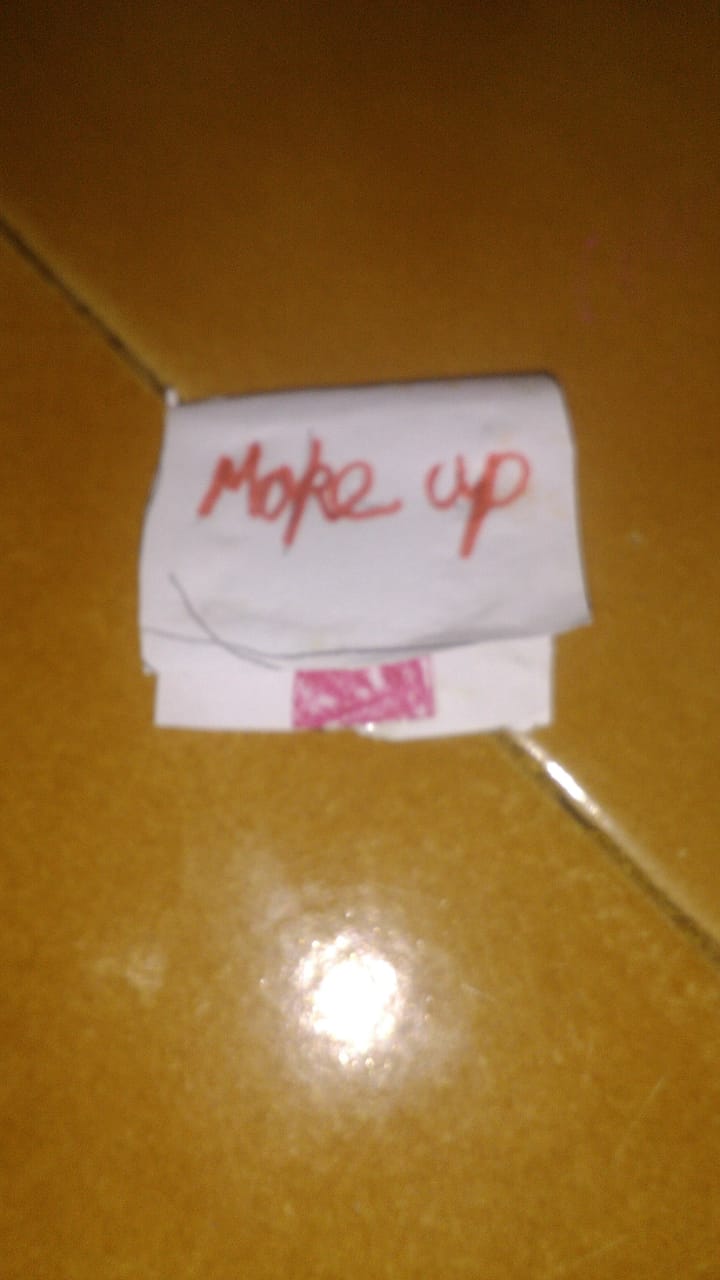 Make up